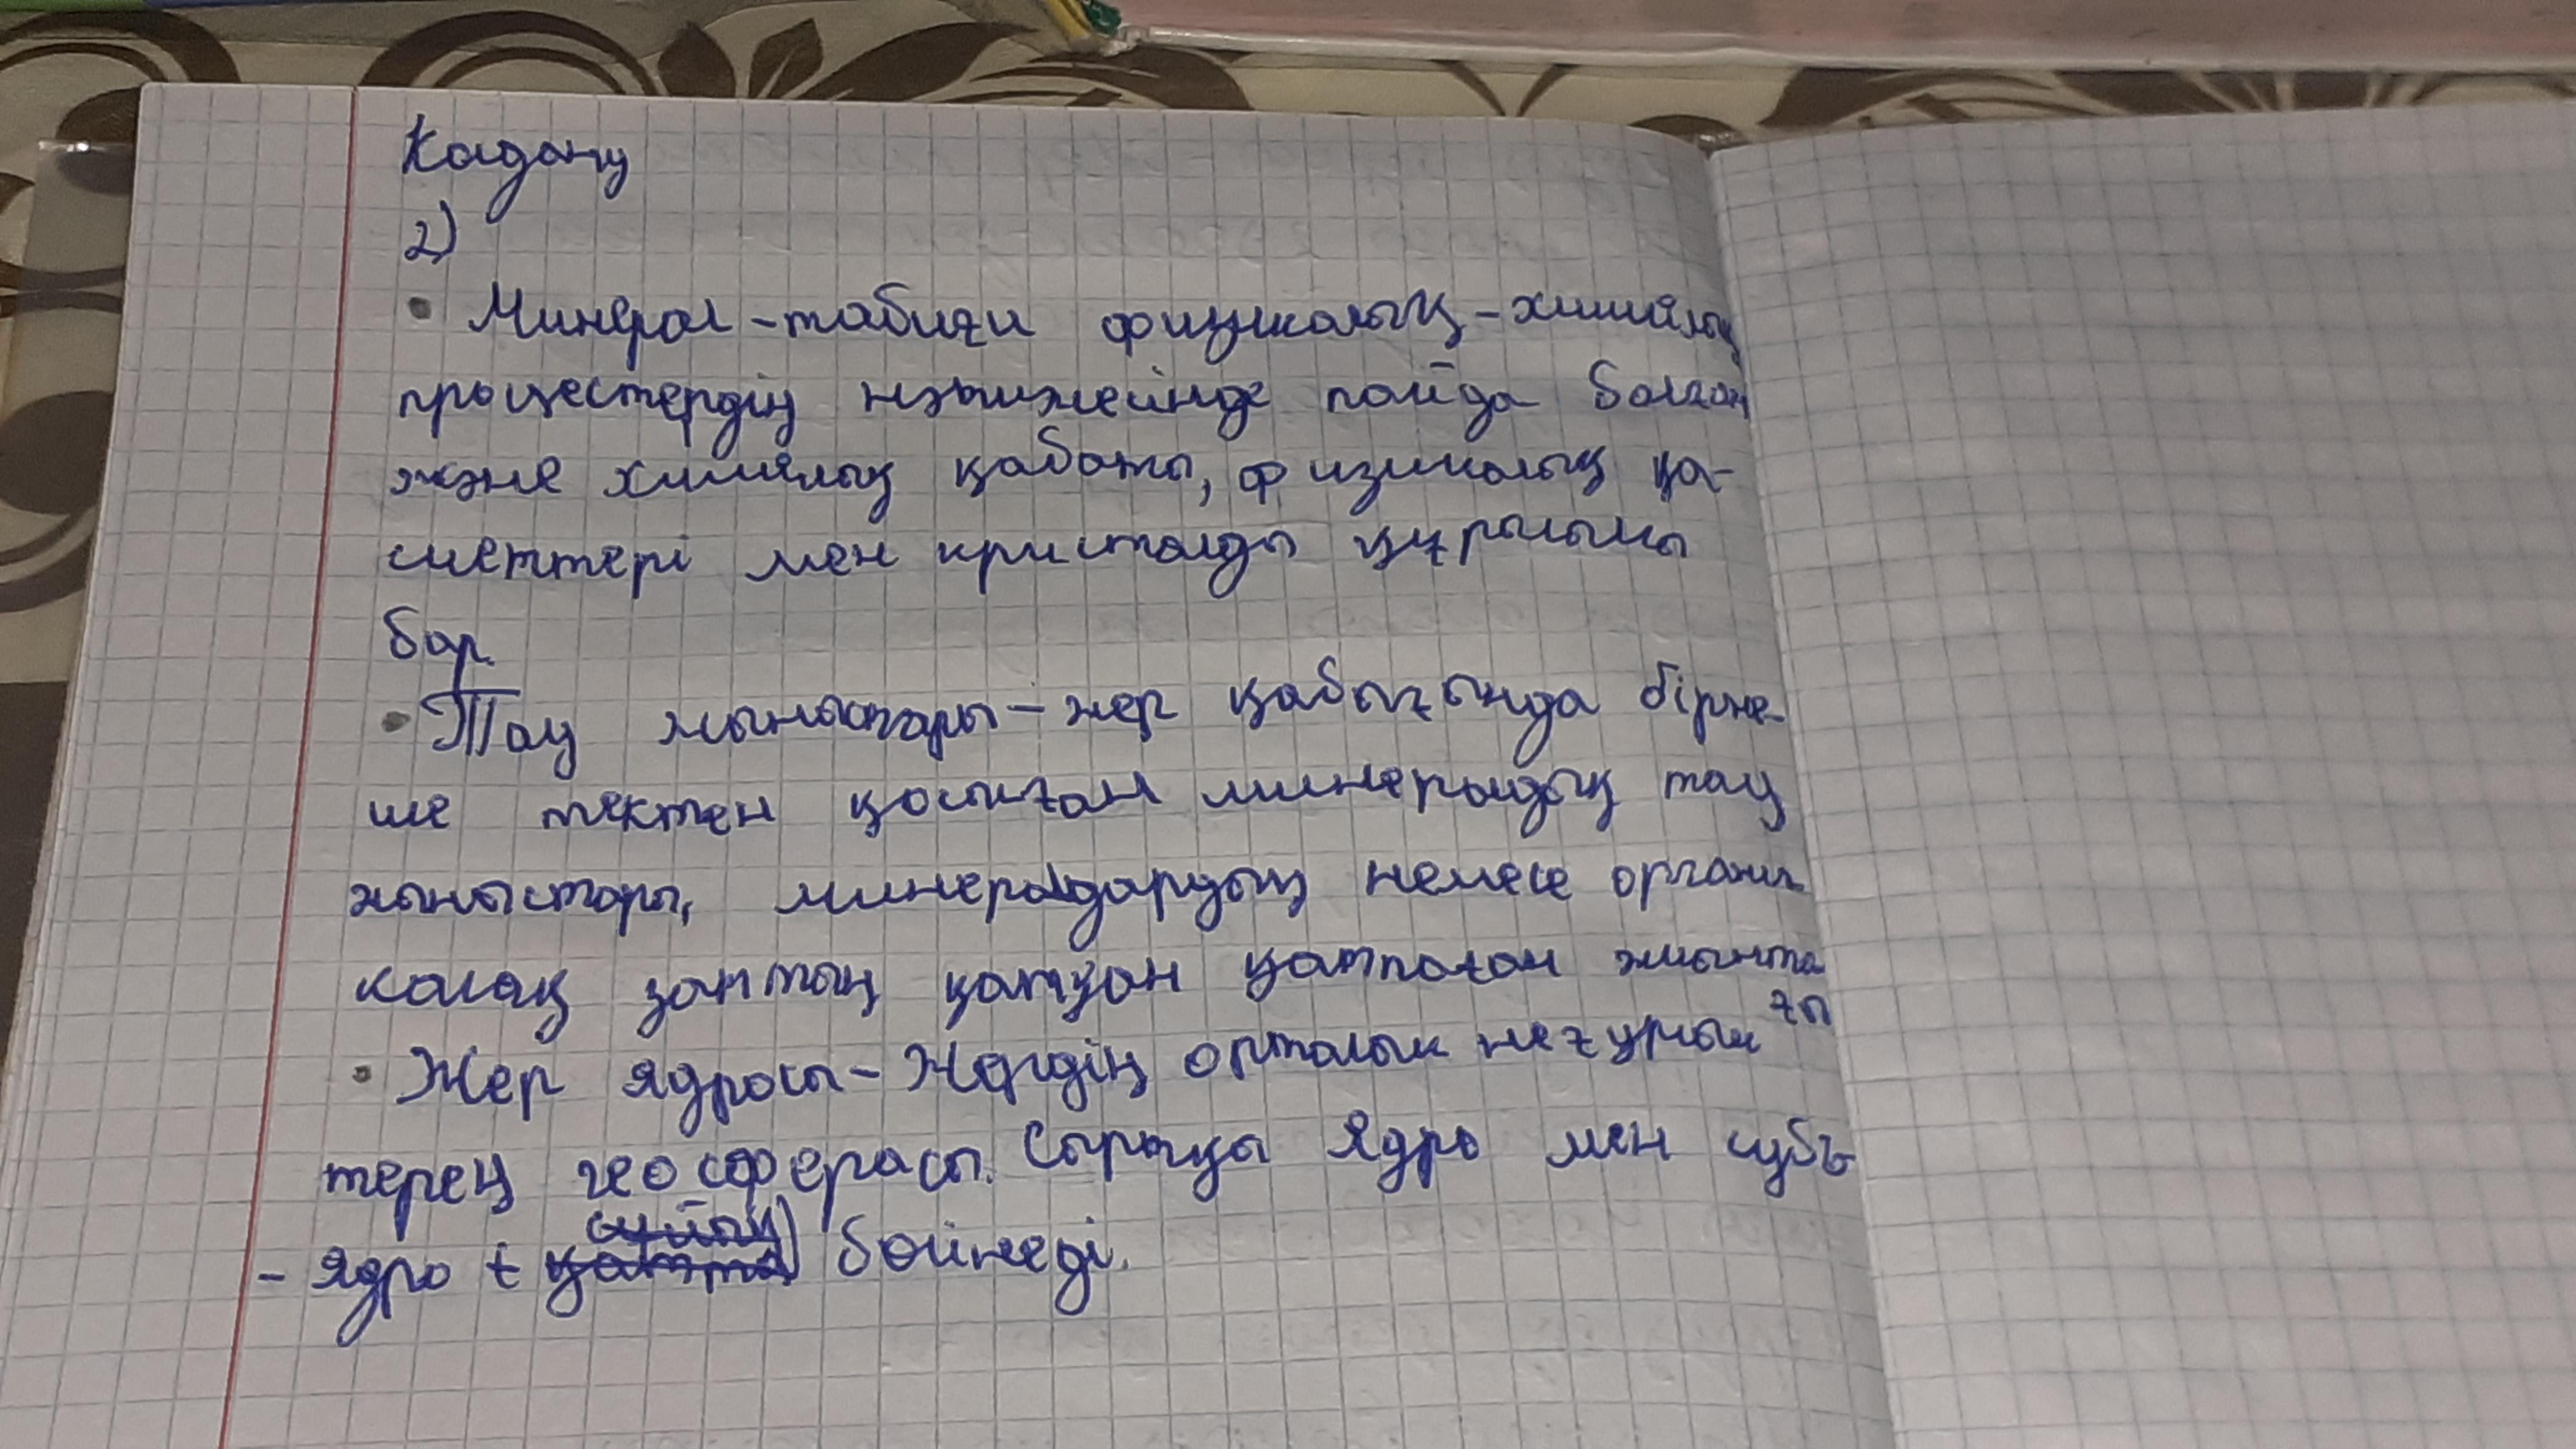 Қадағу
2)
• Минерал - табиғи физикалық - химиялық
процестердің нәтижейінде пайда болған
және химиялық қабаты, физикалық қа-
сиеттері мен кристалды құрылымы
бар.
• Тау жыныстары - жер қабығында бірне-
ше тектен қосылған минералдық тау
жыныстары, минералдардың немесе органи
калық заттың қатқан қатпаған жиынта
ғы
• Жер ядросы - Жердің орталық неғұрлым
терең геосферасы. Сыртқы ядро мен субъ
- ядро бөлінеді.